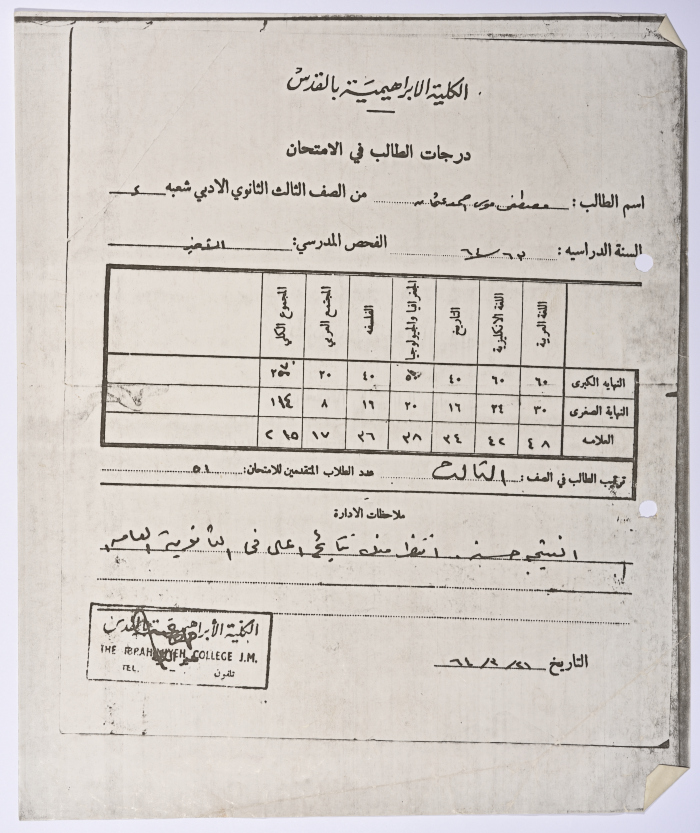 الكلية الابراهيمية بالقدس
درجات الطالب في الامتحان
اسم الطالب : مصطفى موسى من الصف الثالث الثانوي الادبي شعبه
السنة الدراسيه : ٦٣/٦٤ الفحص المدرسي:
اللغة العربية اللغة الانكليزية التاريخ الجغرافيا والجيولوجيا الفلسفه المجتمع العربي المجموع الكلي
النهايه الكبرى ٦٠ ٦٠ ٤٠ ٤٠ ٢٠
النهاية الصغرى ٣٠ ٢٤ ١٦ ٢٠ ١٦ ٨ ١١٤
العلامه ٤٨ ٤٢ ٣٤ ٣٨ ٣٦ ١٧ ٢١٥
ترتيب الطالب في الصف : الثالث عدد الطلاب المتقدمين للامتحان: ٥١
ملاحظات الادارة
النتيجة حسنة . انتظر منه نتائج اعلى في الثانوية العامة
الكلية الأبراهيمية بالقدس
THE IBRAHIMYEH COLLEGE J.M.
TEL. تلفون
التاريخ ٢١/٢/٦٤